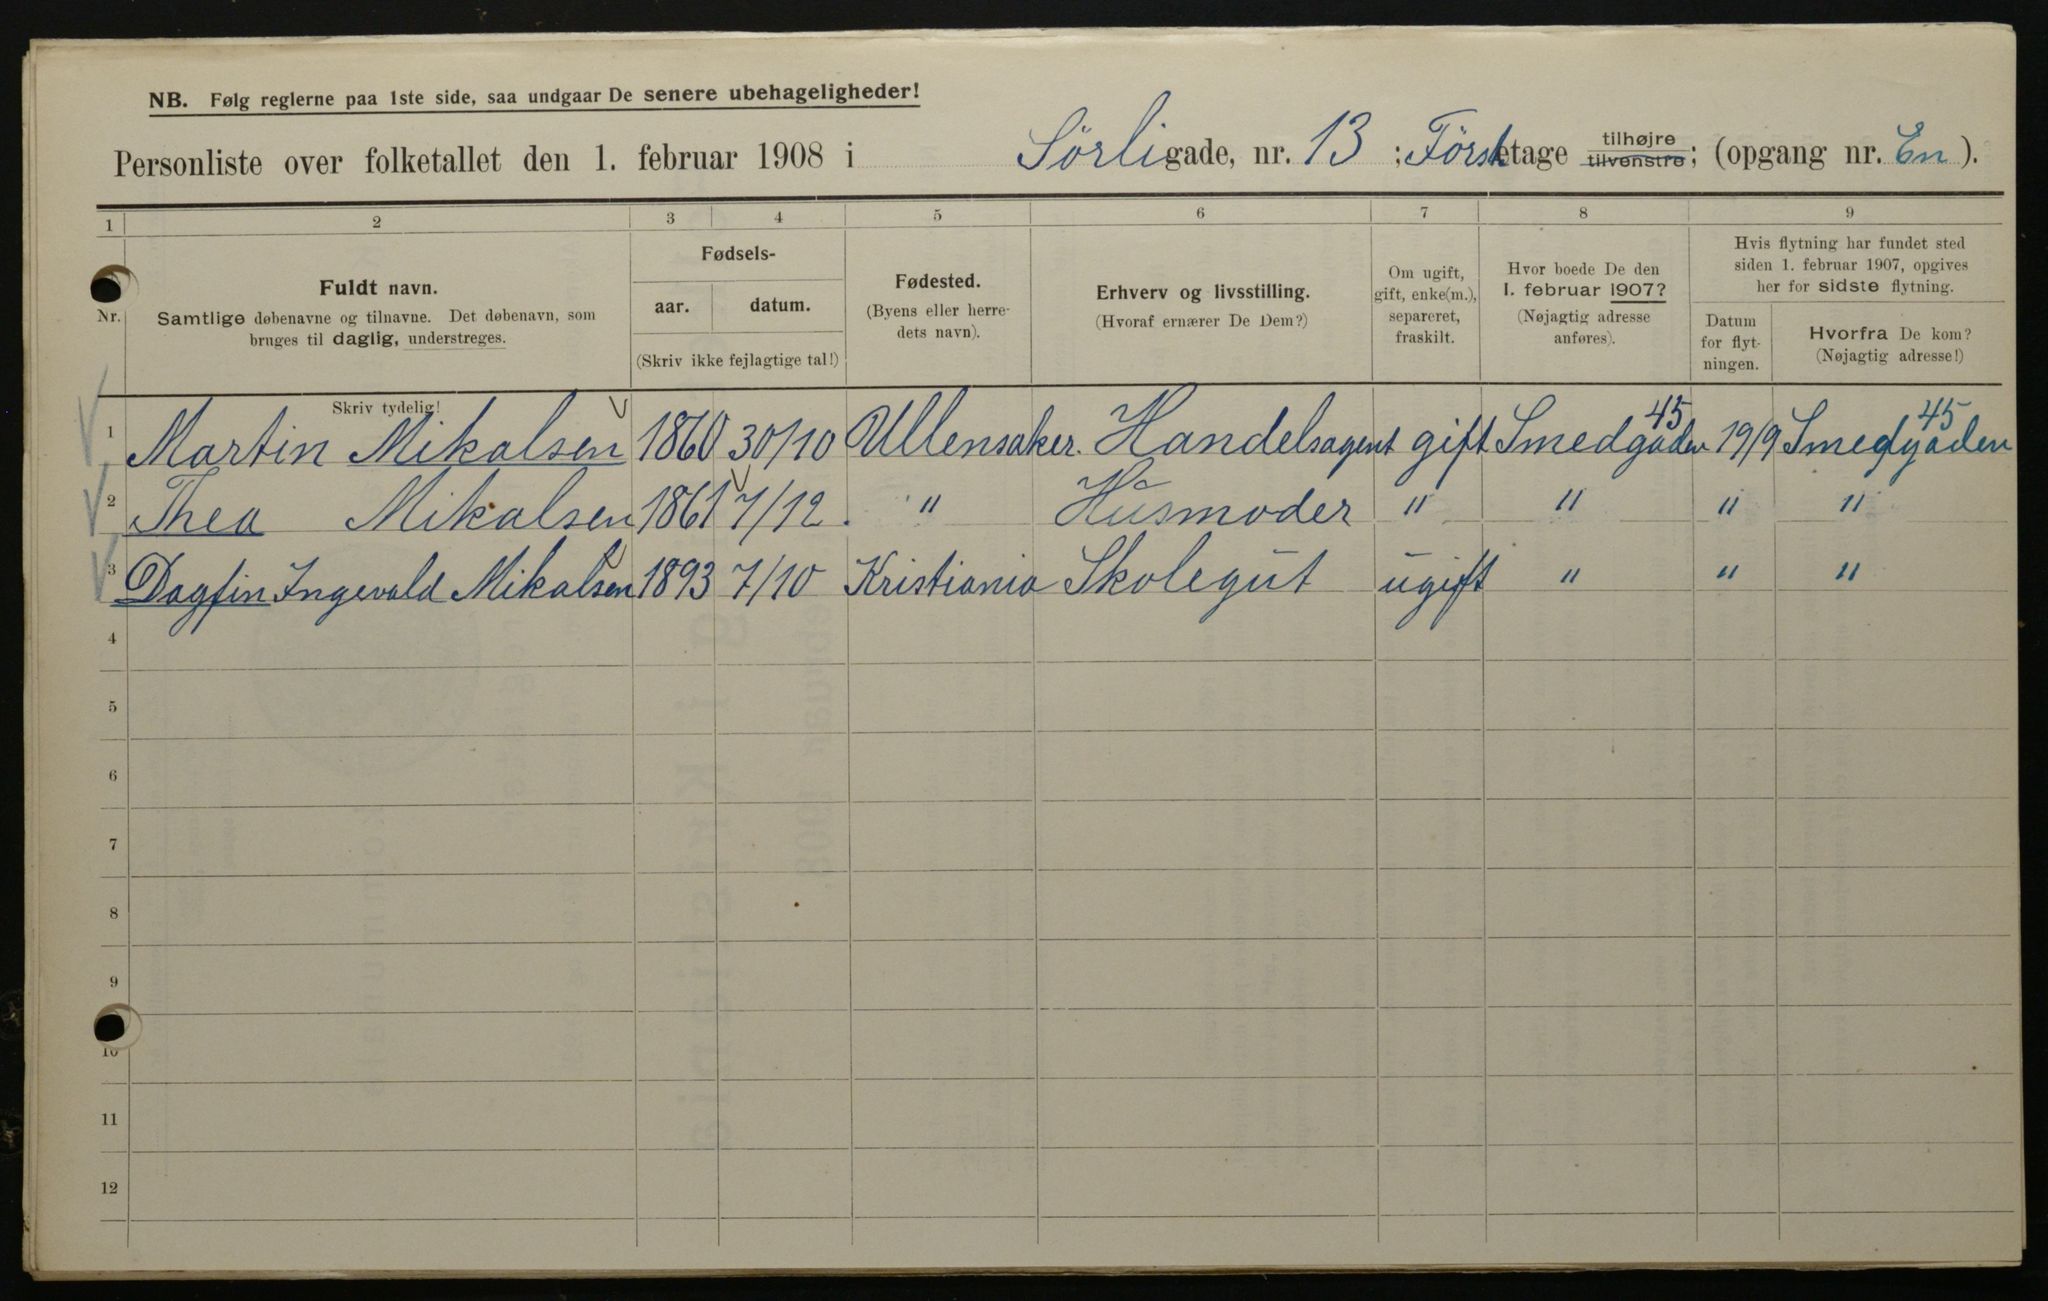 NB. Følg reglerne paa 1ste side, saa undgaar De senere ubehageligheder!
Personliste over folketallet den 1. februar 1908 i Sörligade, nr. 13 ; Förstetage tilhøjre tilvenstre; (opgang nr. En ).
1 2 3 4 5 6 7 8 9
Nr.
Fuldt navn.
Samtlige døbenavne og tilnavne. Det døbenavn, som
bruges til daglig, understreges.
Skriv tydelig!
Fødsels-
aar. datum.
(Skriv ikke fejlagtige tal!)
Fødested.
(Byens eller herre-
dets navn).
Erhverv og livsstilling.
(Hvoraf ernærer De Dem?)
Om ugift,
gift, enke(m.),
separeret,
fraskilt.
Hvor boede De den
1. februar 1907?
(Nøjagtig adresse
anføres).
Hvis flytning har fundet sted
siden 1. februar 1907, opgives
her for sidste flytning.
Datum
for flyt-
ningen.
Hvorfra De kom?
(Nøjagtig adresse!)
1 Martin Mikalsen 1860 30/10 Ullensaker. Handelsagent gift Smedgaden 45 19/9 Smedgaden 45
2 Thea Mikalsen 1861 7/12 " Husmoder " " " "
3 Dagfin Ingevald Mikalsen 1893 7/10 Kristiania Skolegut ugift " " "
4
5
6
7
8
9
10
11
12